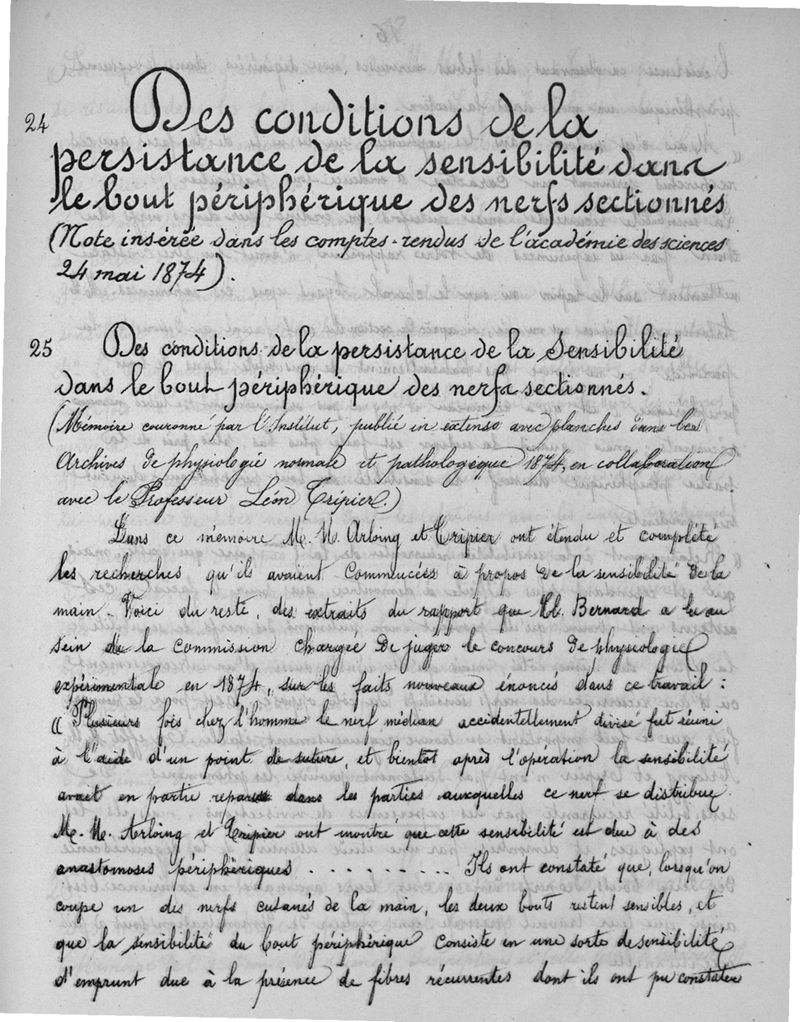 24 Des conditions de la
persistance de la sensibilité dans
le bout périphérique des nerfs sectionnés
(Note insérée dans les comptes-rendus de l'académie des sciences
24 mai 1874).
25 Des conditions de la persistance de la Sensibilité
dans le bout périphérique des nerfs sectionnés.
(Mémoire couronné par l'Institut, publié in extenso avec planches dans les
Archives de physiologie normale et pathologique 1874, en collaboration
avec le Professeur Léon Tripier.)
Dans ce mémoire M. M. Arloing et Tripier ont étendu et complété
les recherches qu'ils avaient commencées à propos de la sensibilité de la
main. Voici du reste, des extraits du rapport que Cl. Bernard a lu au
sein de la commission chargée de juger le concours de physiologie
expérimentale en 1874, sur les faits nouveaux énoncés dans ce travail :
« Plusieurs fois chez l'homme le nerf médian accidentellement divisé fut réuni
à l'aide d'un point de suture, et bientôt après l'opération la sensibilité
avait en partie reparue dans les parties auxquelles ce nerf se distribue.
M. M. Arloing et Tripier ont montré que cette sensibilité est due à des
anastomoses périphériques . . . . . . . . . Ils ont constaté que, lorsqu'on
coupe un des nerfs cutanés de la main, les deux bouts restent sensibles, et
que la sensibilité du bout périphérique consiste en une sorte de sensibilité
d'emprunt due à la présence de fibres récurrentes dont ils ont pu constater